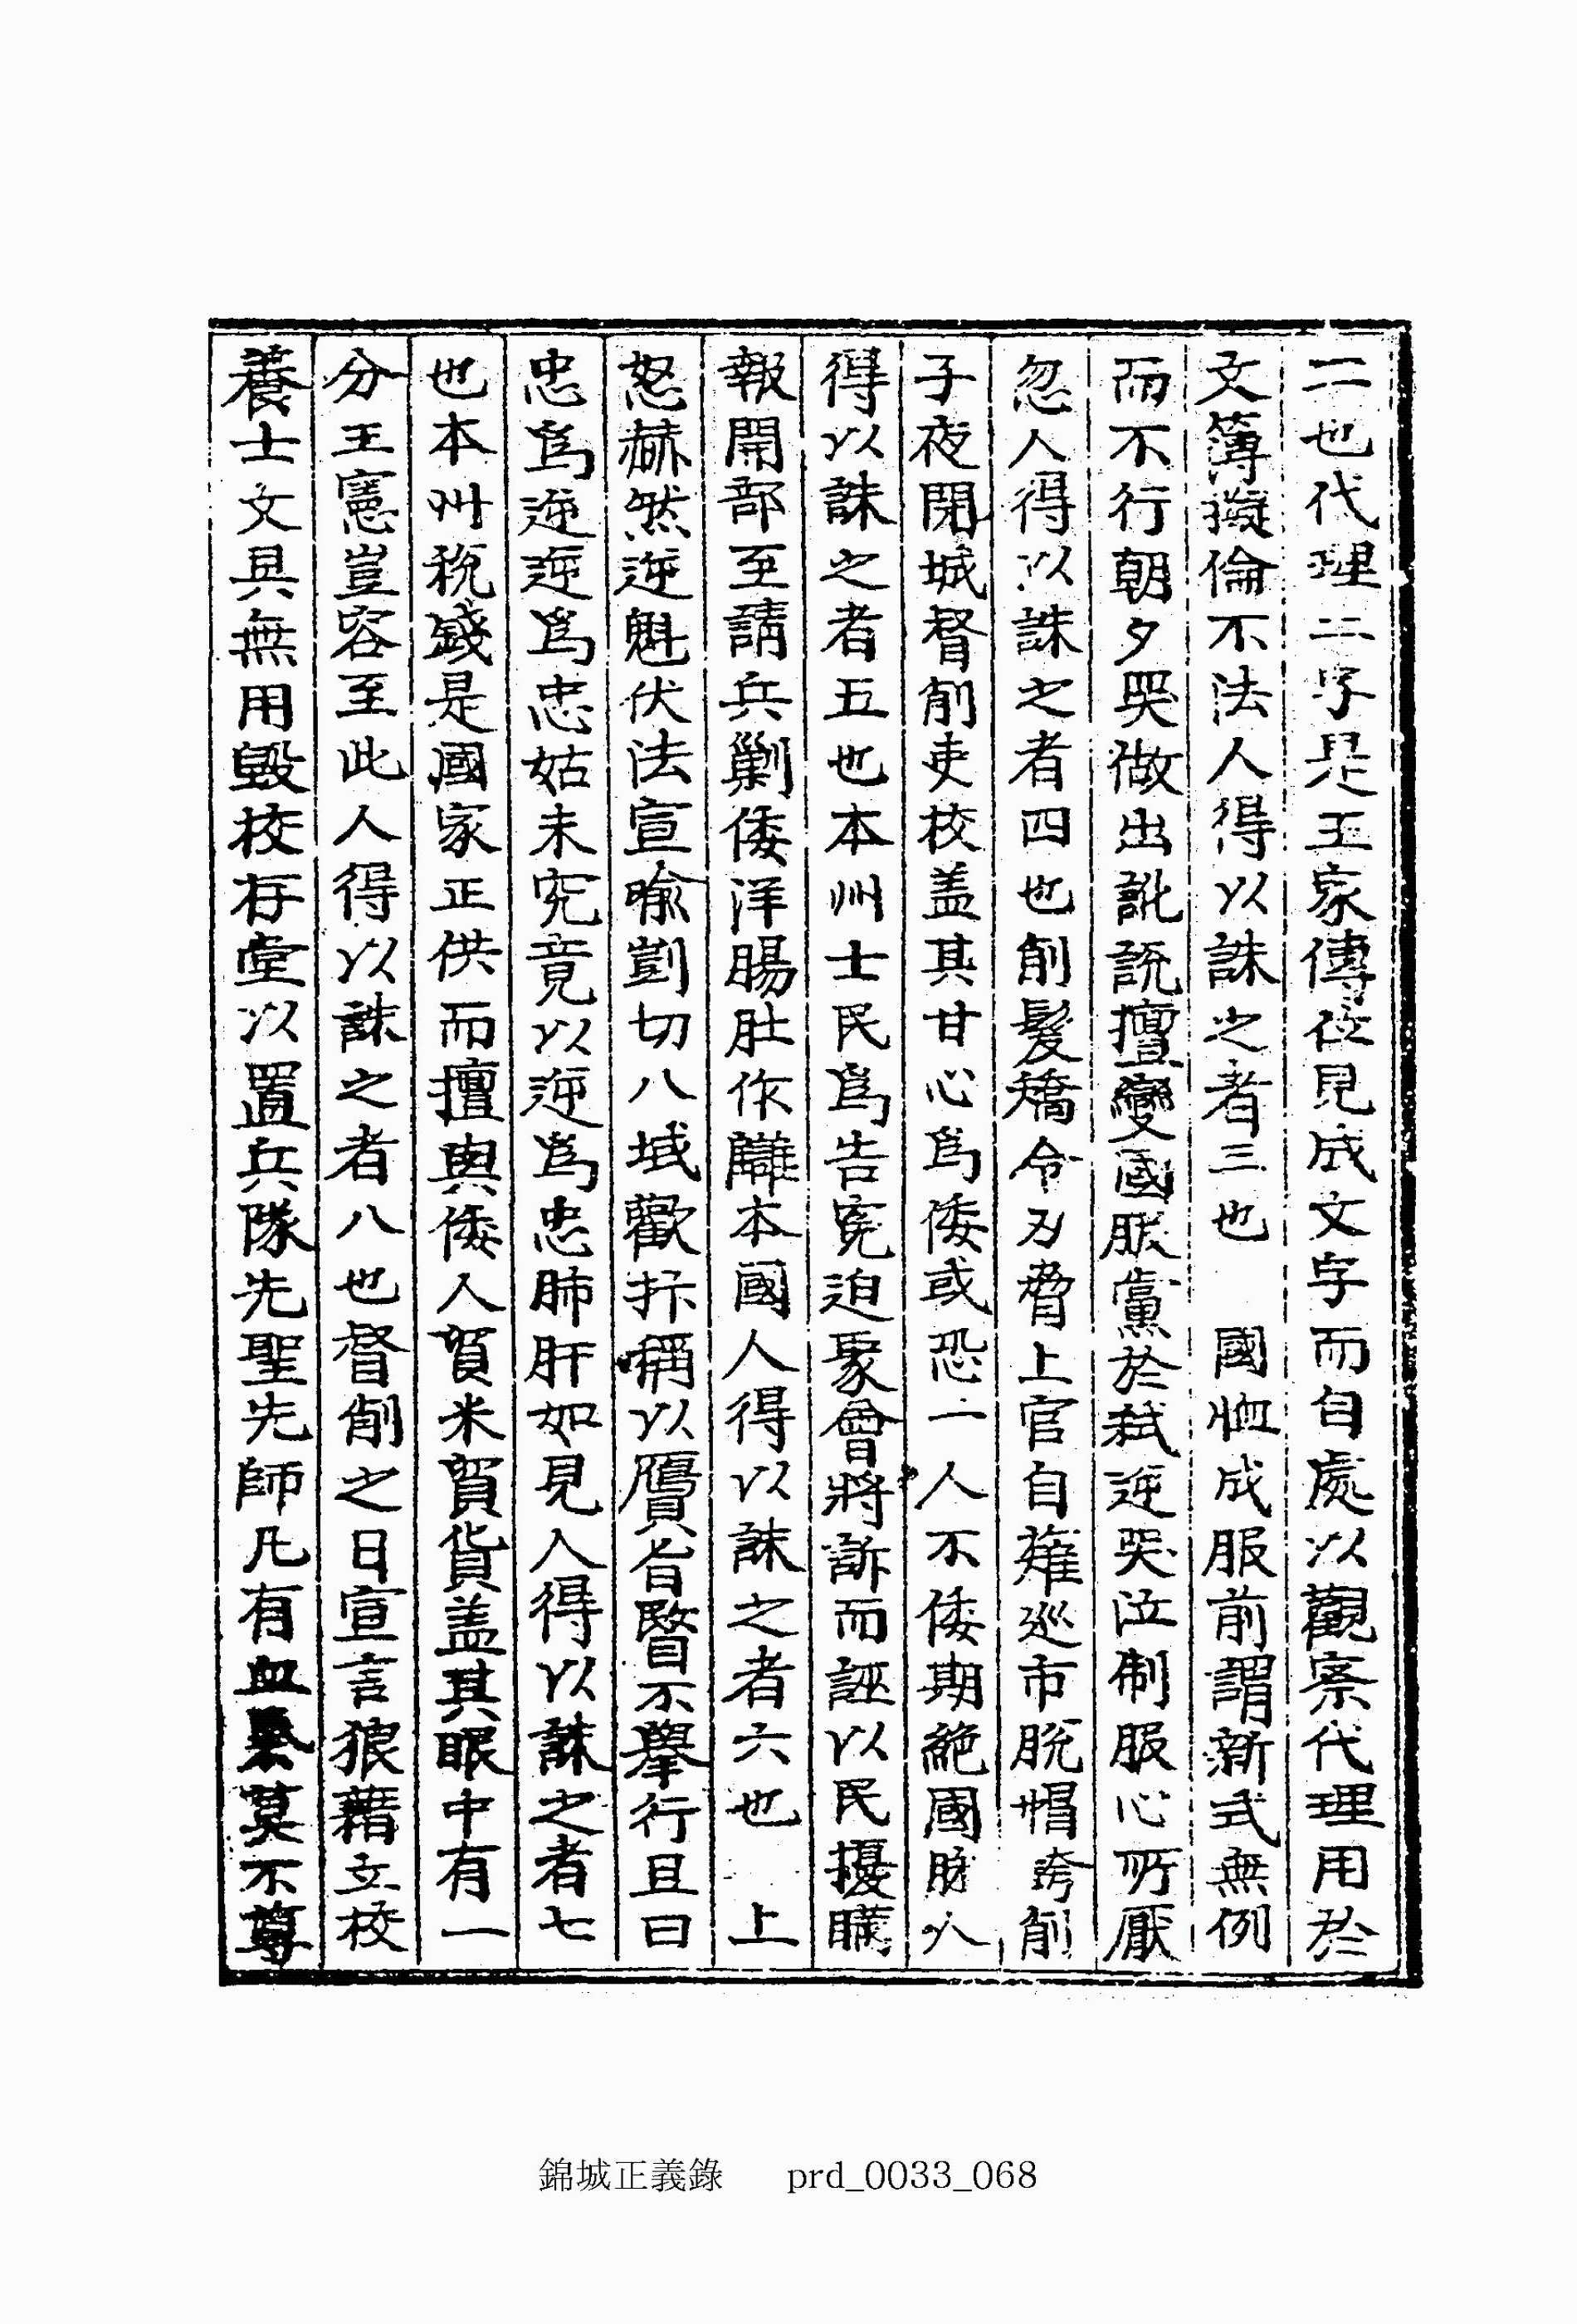 二也代理二字是王家傳位見成文字而自處以觀察代理用於
文簿擬倫不法人得以誅之者三也　國恤成服前謂新式無例
而不行朝夕哭做出訛說擅變國服黨於弑逆哭泣制服心所厭
忽人得以誅之者四也削髮矯令刃脅上官自薙巡市脫帽誇削
子夜開城督削吏校盖其甘心爲倭或恐一人不倭期絶國脉八
得以誅之者五也本州士民爲告寃迫聚會將訴而誣以民擾瞞
報開部至請兵剿倭洋腸肚作讎本國人得以誅之者六也　上
怒赫然逆魁伏法宣喩剴切八域歡抃嘶稱以贋旨瞖不擧行且曰
忠爲逆逆爲忠姑未究竟以逆爲忠肺肝如見人得以誅之者七
也本州稅錢是國家正供而擅與倭人貿米貿貨盖其眼中有一
分王憲豈容至此人得以誅之者八也督削之日宣言狼藉立校
養士文具無用毀校存堂以置兵隊先聖先師凡有血氣莫不尊
錦城正義錄　prd_0033_068